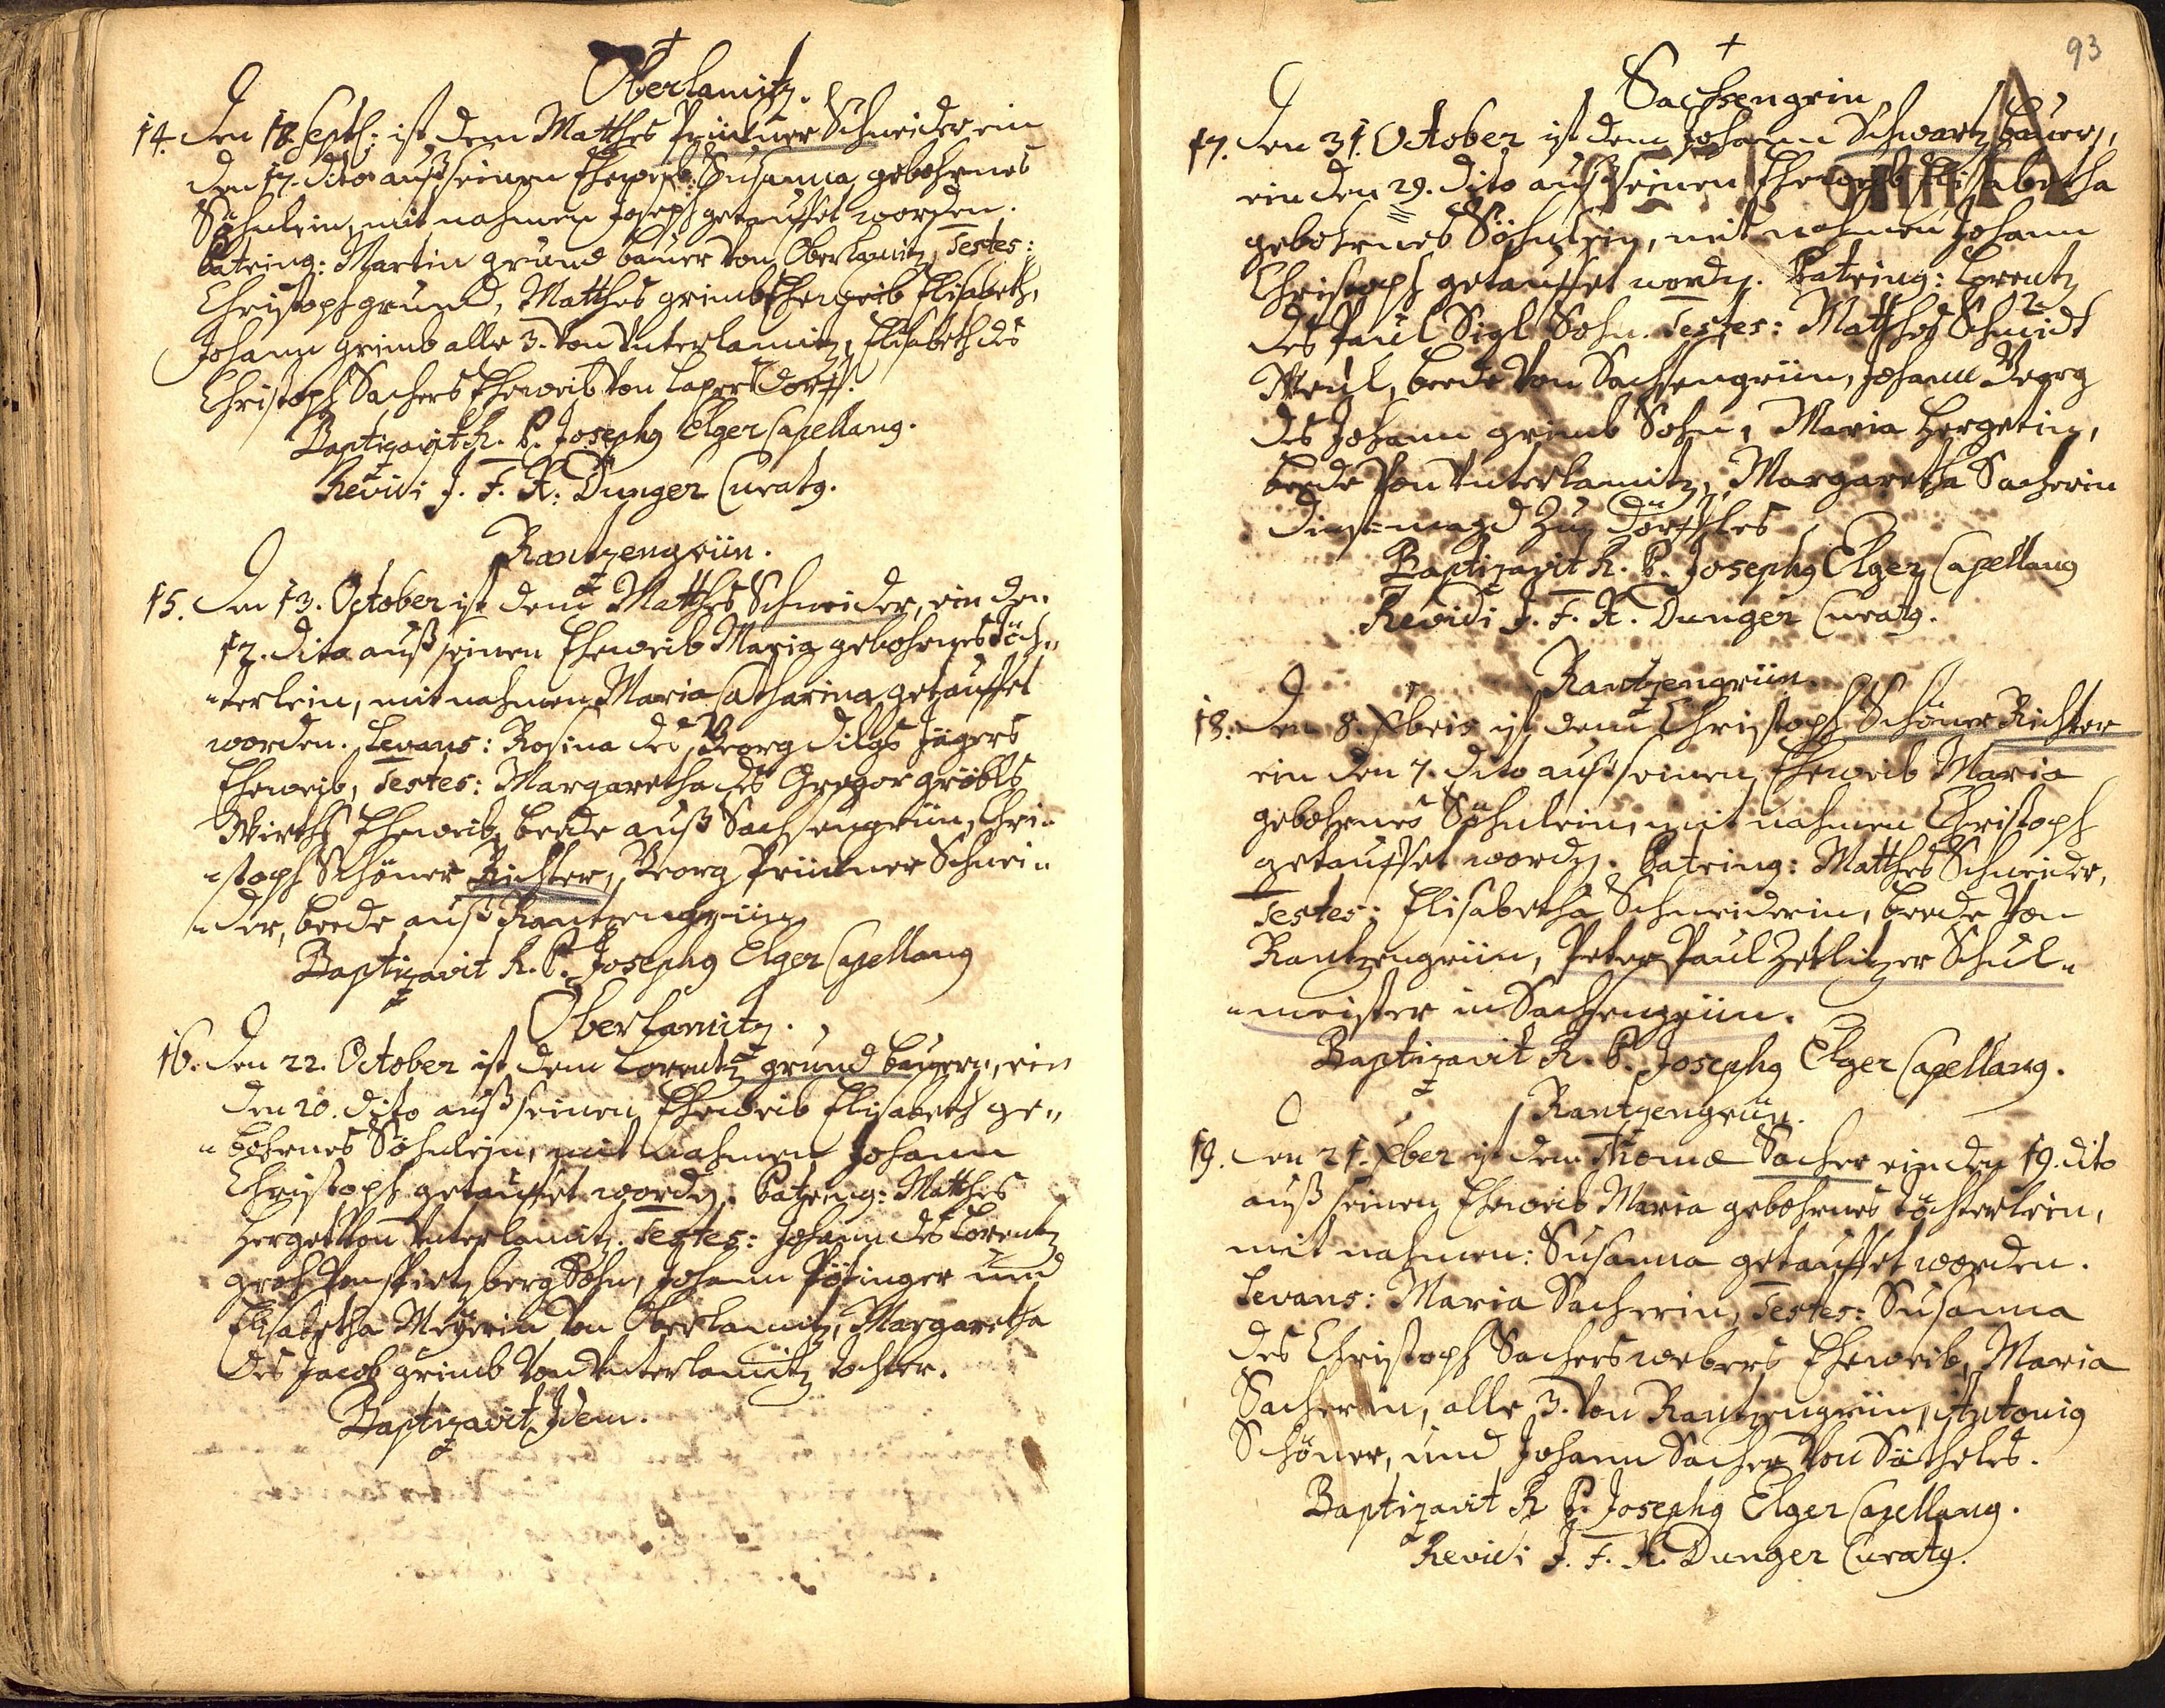 Oberlamitz.
14. Den 18. Septb: ist dem Matthes Prückner Schneider ein
den 17. dito auß seinen Eheweib Susanna gebohrnes
Söhnlein, mit nahmen Joseph getauffet worden.
Patrinq: Martin grund bauer von Oberlamitz, Testes:
Christoph grund, Matthes grimb Eheweib Elisabeth,
Johann grimb alle 3. von Unterlamitz, Elisabeth des
Christoph Sachers Eheweib von Lapersdorff.
Baptizavit R. P. Josephq Elger Capellanq.
Revidi J. F. A. Dunger Curatq.
Rantzengrün.
15. Den 13. October ist dem Matthes Schneider, ein den
12. dito auß seinen Eheweib Maria gebohrnes Töch„
„terlein, mit nahmen Maria Catharina getauffet
worden. Levans: Rosina des Georg Dilgs Jägers
Eheweib, Testes: Margaretha des Gregor gröbls
Wirths Eheweib, beede auß Sachsengrün, Chri„
„stoph Schöner Richter, Georg Prückner Schnei„
„der, beede auß Rantzengrün
Baptizavit R. P. Josephq Elger Capellanq
Oberlamitz.
16. Den 22. October ist dem Lorentz grund bauern, ein
den 20. dito auß seinen Eheweib Elisabeth ge„
„bohrnes Söhnlein, mit nahmen Johann
Christoph getauffet wordn. Patrinq: Matthes
Herget von Unterlamitz. Testes: Johann des Lorentz
groh von bergs Sohn, Johann Pötinger und
Elisabetha Meÿerin von Oberlamitz, Margaretha
des Jacob grimb von Unterlamitz tochter.
Baptizavit Idem.
93
Sachsengrin
17. Den 31. October ist dem Johann Schwartz bauern,
ein den 29. dito auß seinen Eheweib Elisabetha
gebohrnes Söhnlein, mit nahmen Johann
Christoph getauffet wordn. Patrinq: Lorentz
des Paul Sigl Sohn. Testes: Matthes Schmidt
beede von Sachsengrün, Johann Georg
des Johann grimb Sohn, Maria Hergetin,
beede von Unterlamitz, Margaretha Sacherin
dinst=magd zu Dörffles
Baptizavit R. P. Josephq Elger Capellanq
Revidi J. F. A. Dunger Curatq.
Rantzengrün
18. Den 8. Xbris ist dem Christoph Schöner Richter
ein den 7. dito auß seinen Eheweib Maria
gebohrnes Söhnlein, mit nahmen Christoph
getauffet wordn. Patrinq: Matthes Schneider,
Testes: Elisabetha Schneiderin, beede von
Rantzengrün, Peter Paul Zetlitzer Schul„
„meister in Sachsengrün.
Baptizavit R. P. Josephq Elger Capellanq.
Rantzengrün.
19. Den 21. Xber ist dem Thomæ Sacher ein den 19. dito
auß seinen Eheweib Maria gebohrnes töchterlein,
mit nahmen: Susanna getauffet worden.
Levans: Maria Sacherin, Testes: Susanna
des Christoph Sachers webers Eheweib, Maria
Sacherin, alle 3. von Rantzengrün, Antoniq
Schöner, und Johann Sacher von Sötheles.
Baptizavit R P. Josephq Elger Capellanq.
Revidi J. F. A. Dunger Curatq.